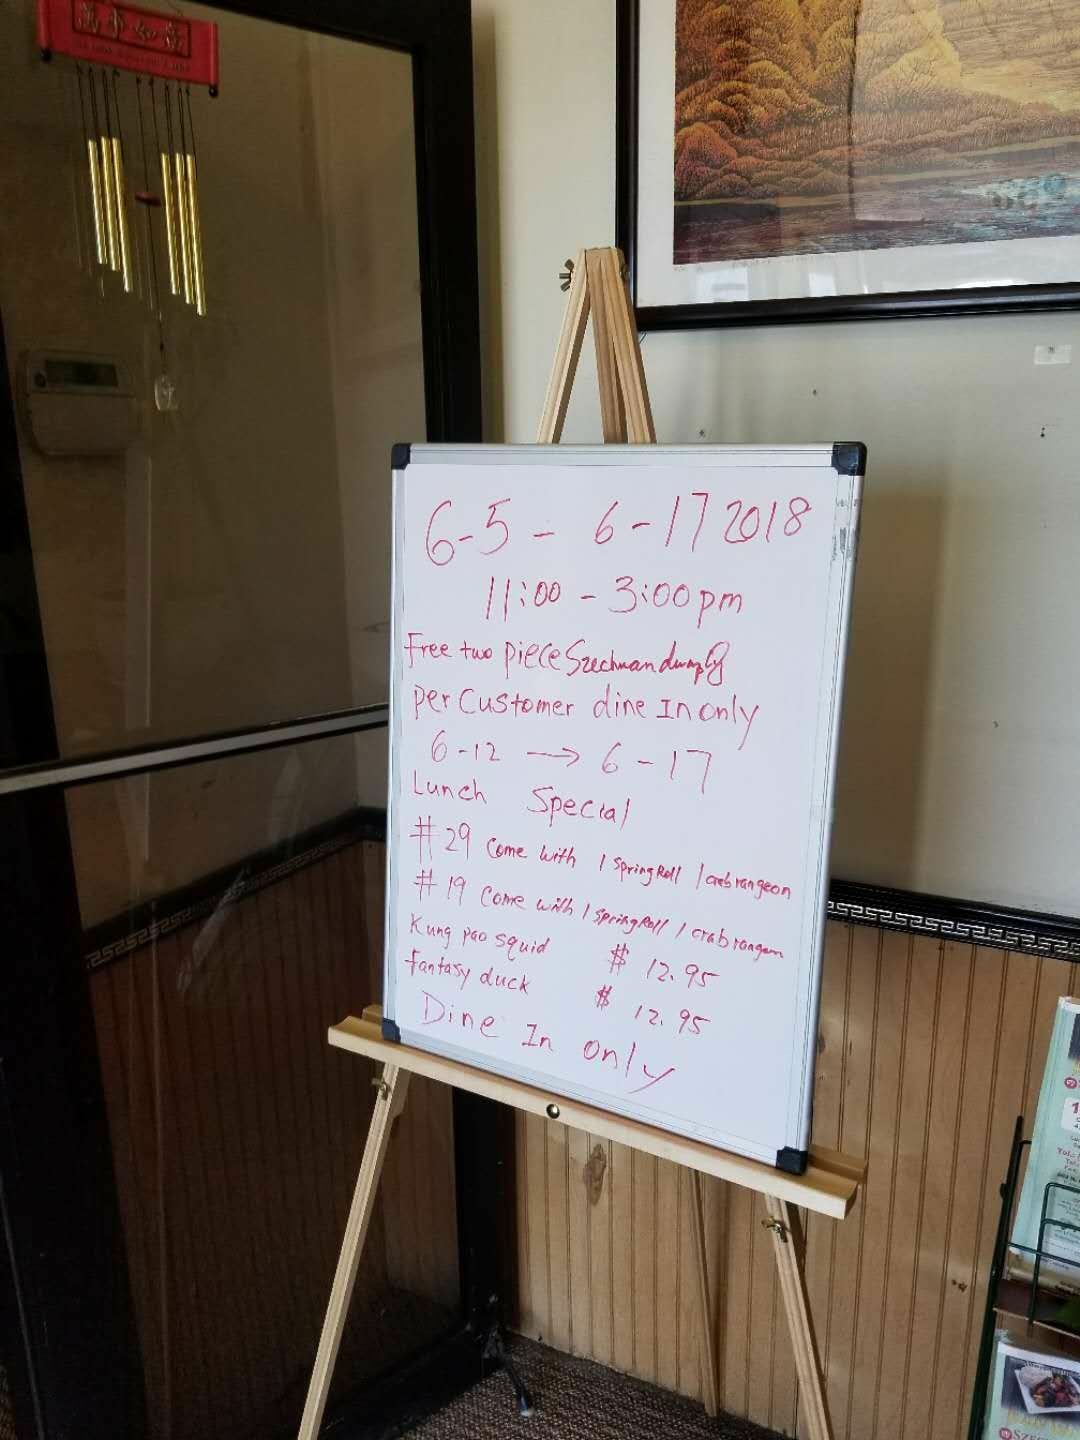 萬事如意
6-5 - 6-17 2018
11:00 - 3:00pm
Free two piece Szechuan
per Customer dine In only
6-12 → 6-17
Lunch Special
#29 Come with 1 Spring Roll 1 crab rangeon
#19 Come with 1 Spring Roll 1 crab rangeon
Kung pao squid $ 12.95
Fantasy duck $ 12.95
Dine In only